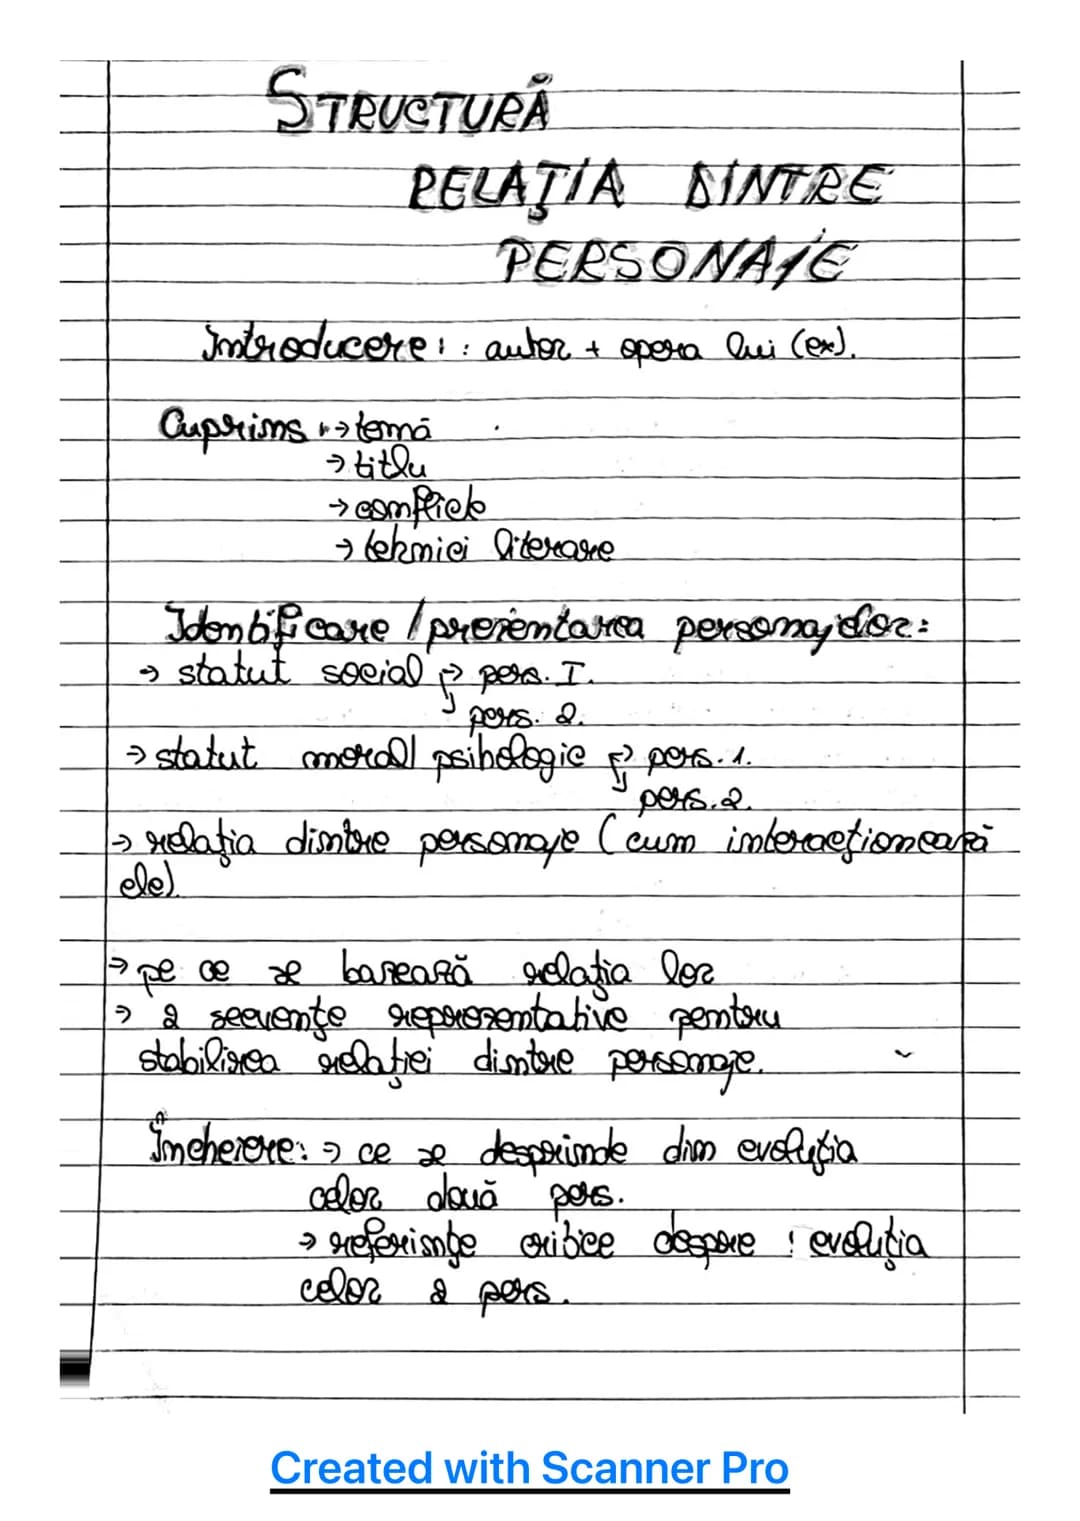 STRUCTURĂ
RELAȚIA DINTRE
PERSONAJE
Introducere: : autor + opera lui (ex).
Cuprins: → temă
→ titlu
→ conflict
→ tehnici literare
Identificare / prezentarea personajelor:
→ statut social → pers. I.
↳ pers. 2.
→ statut moral/ psihologic → pers. 1.
↳ pers. 2.
→ relația dintre personaje (cum interacționează
ele).
→ pe ce se bazează relația lor
→ 2 secvențe reprezentative pentru
stabilirea relației dintre personaje.
Încheiere: → ce se desprinde din evoluția
celor două pers.
→ referințe critice despre : evoluția
celor 2 pers.
Created with Scanner Pro